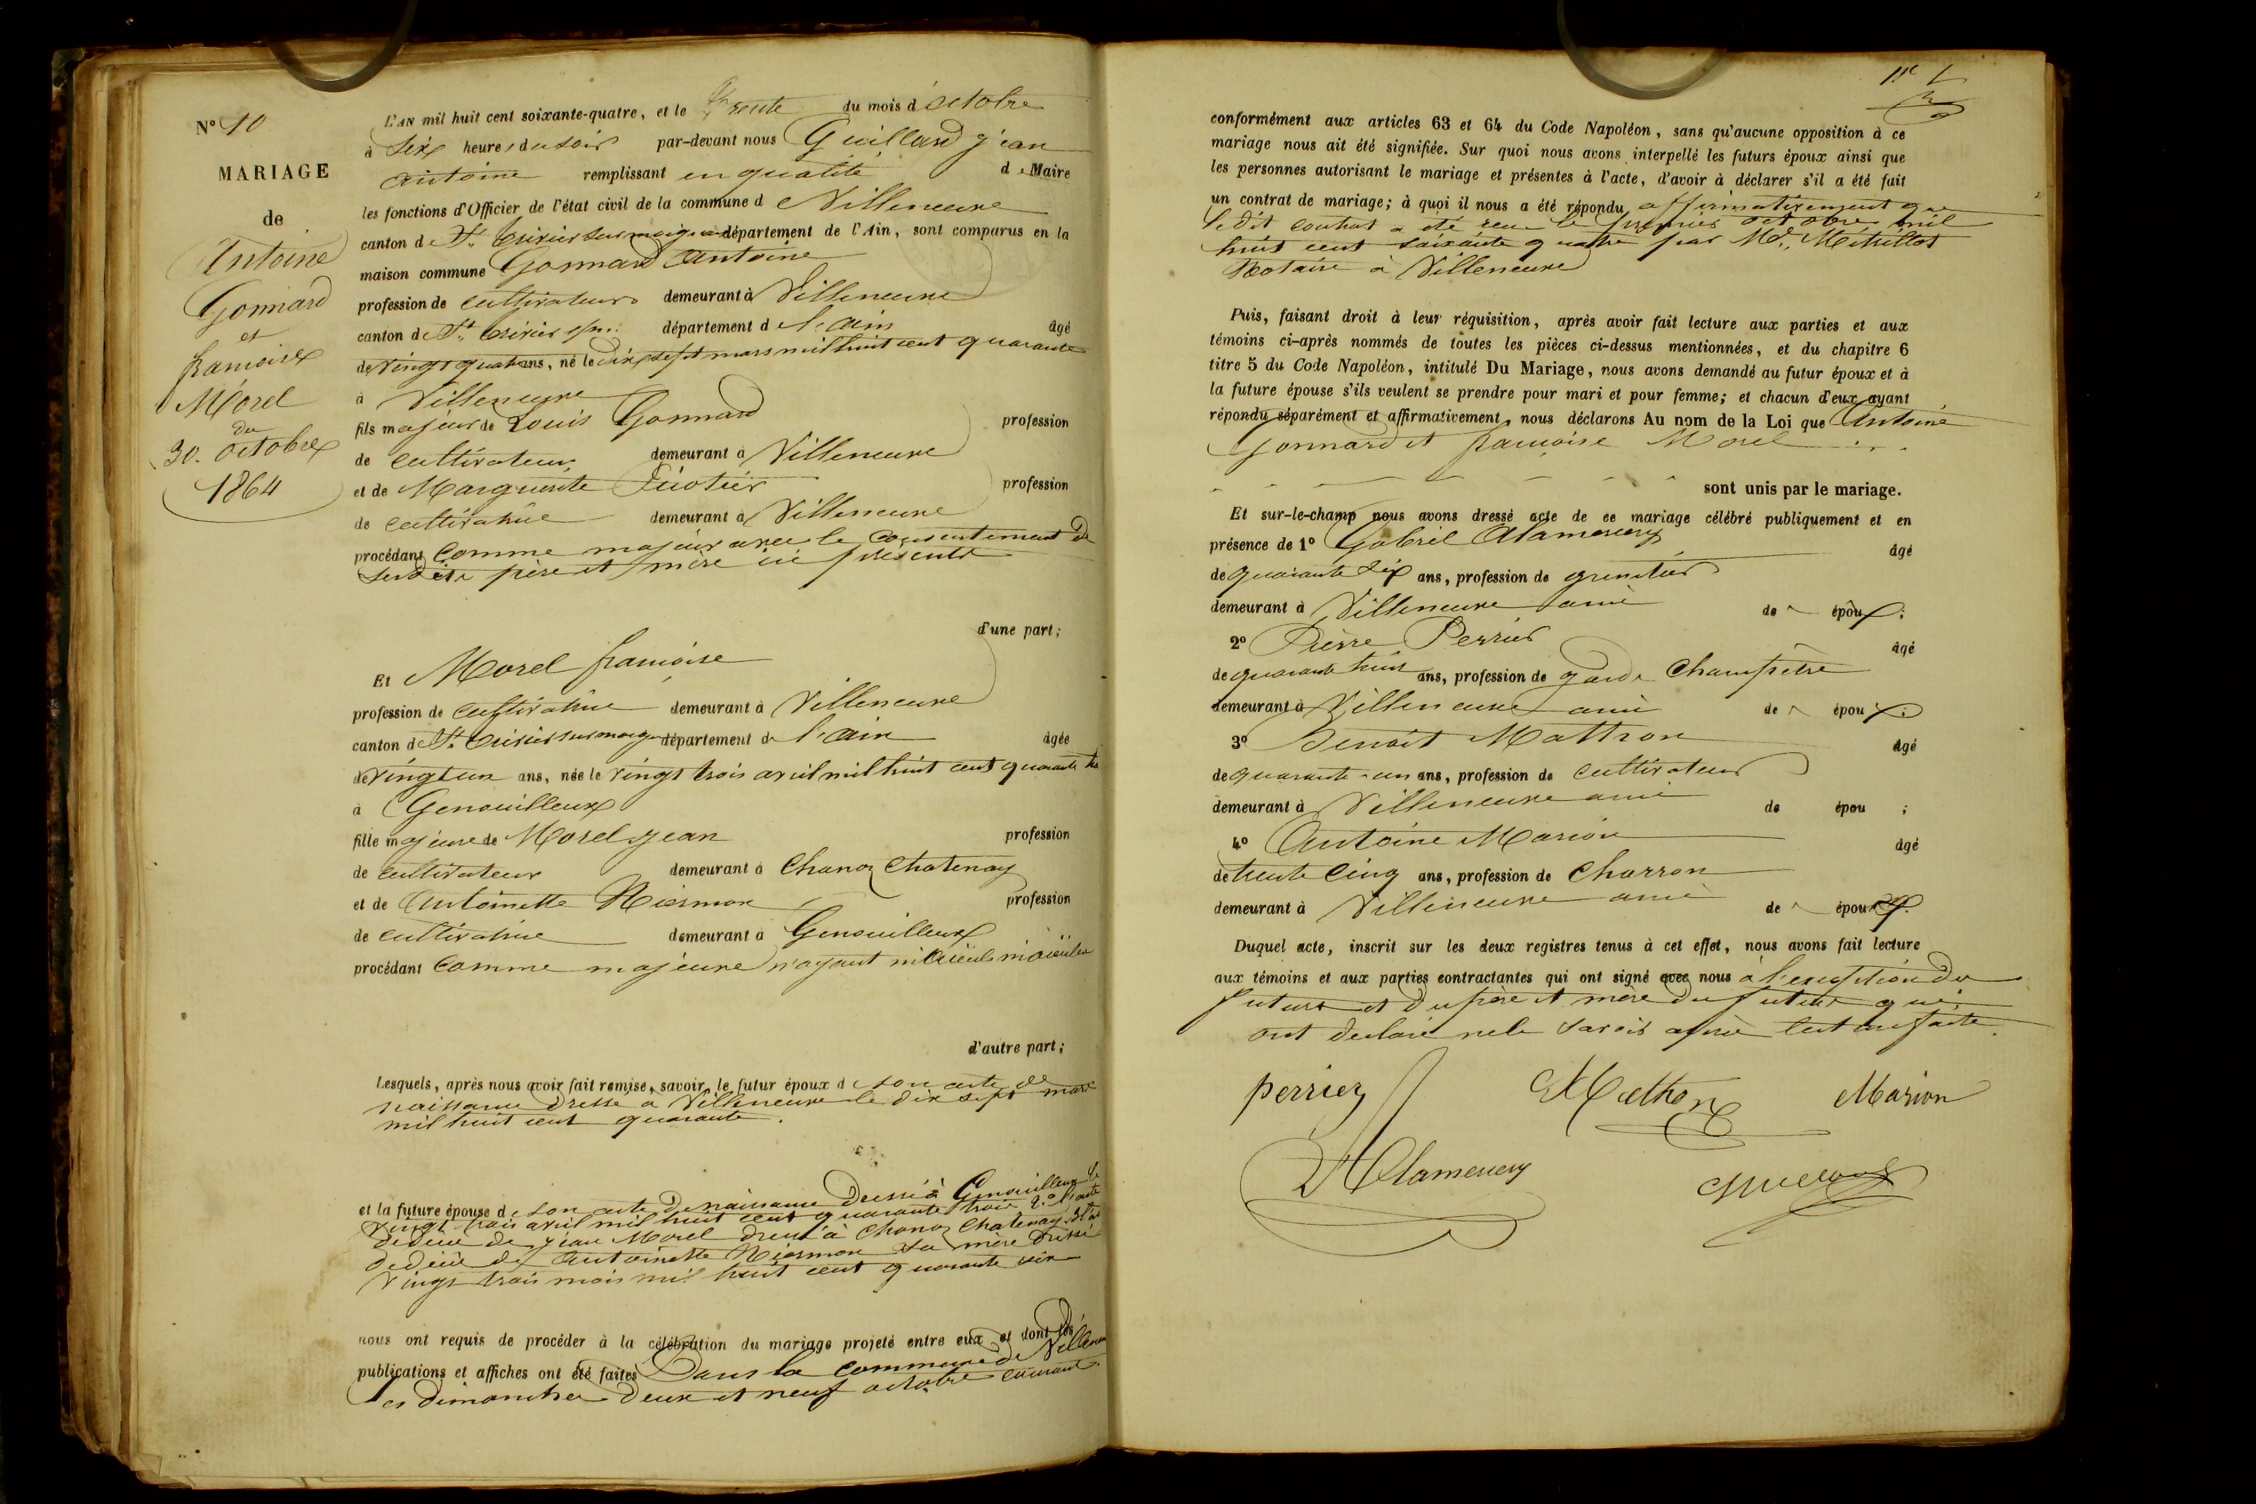 N° 10
MARIAGE
de
Antoine
Gonnard
et
françoise
Morel
du
30. octobre
1864
L'AN mil huit cent soixante-quatre, et le trente du mois d'octobre
à six heures du soir par-devant nous Guillard jean
antoine remplissant en qualité de Maire
les fonctions d'Officier de l'état civil de la commune d Villeneuve
canton de St trivier sur moignans département de l'Ain, sont comparus en la
maison commune Gonnard antoine
profession de cultivateur demeurant à Villeneuve
canton de St trivier s/m. département de l'ain âgé
de vingt quatre ans, né le dix sept mars mil huit cent quarante
à Villeneuve
fils majeur de Louis Gonnard profession
de cultivateur demeurant à Villeneuve
et de Marguerite profession
de cultivatrice demeurant à Villeneuve
procédant comme majeur avec le consentement de
ses dits père et mère ici présents
d'une part;
Et Morel françoise
profession de cultivatrice demeurant à Villeneuve
canton de St trivier sur moignans département de l'ain âgée
de vingt un ans, née le vingt trois avril mil huit cent quarante trois
à Genouilleux
fille majeure de Morel jean profession
de cultivateur demeurant à Chanoz Chatenay
et de Antoinette Niermon profession
de cultivatrice demeurant à Genouilleux
procédant comme majeure n'ayant ni aïeuls ni aïeules
d'autre part;
Lesquels, après nous avoir fait remise, savoir, le futur époux de son acte de
naissance dressé à Villeneuve le dix sept mars
mil huit cent quarante.
et la future épouse de son acte de naissance dressé à Genouilleux le
vingt trois avril mil huit cent quarante trois 2° l'acte
de décès de jean Morel dressé à Chanoz Chatenay 3°
de décès de Antoinette Niermon sa mère dressé
vingt trois mil huit cent quarante
nous ont requis de procéder à la célébration du mariage projeté entre eux et dont les
publications et affiches ont été faites Dans la commune de Villeneuve
les dimanches deux et neuf octobre courant
conformément aux articles 63 et 64 du Code Napoléon, sans qu'aucune opposition à ce
mariage nous ait été signifiée. Sur quoi nous avons interpellé les futurs époux ainsi que
les personnes autorisant le mariage et présentes à l'acte, d'avoir à déclarer s'il a été fait
un contrat de mariage; à quoi il nous a été répondu affirmativement que
le dit contrat a été reçu le premier octobre mil
huit cent soixante quatre par Me
Notaire à Villeneuve
Puis, faisant droit à leur réquisition, après avoir fait lecture aux parties et aux
témoins ci-après nommés de toutes les pièces ci-dessus mentionnées, et du chapitre 6
titre 5 du Code Napoléon, intitulé Du Mariage, nous avons demandé au futur époux et à
la future épouse s'ils veulent se prendre pour mari et pour femme; et chacun d'eux ayant
répondu séparément et affirmativement, nous déclarons Au nom de la Loi que Antoine
Gonnard et françoise Morel
sont unis par le mariage.
Et sur-le-champ nous avons dressé acte de ce mariage célébré publiquement et en
présence de 1° Gabriel Alamercery âgé
de quarante six ans, profession de
demeurant à Villeneuve ami de époux;
2° Pierre Perrier âgé
de quarante huit ans, profession de garde Champêtre
demeurant à Villeneuve ami de époux;
3° Benoit Mathon âgé
de quarante-un ans, profession de cultivateur
demeurant à Villeneuve ami de épou ;
4° Antoine Marion âgé
de trente cinq ans, profession de Charron
demeurant à Villeneuve ami de époux.
Duquel acte, inscrit sur les deux registres tenus à cet effet, nous avons fait lecture
aux témoins et aux parties contractantes qui ont signé avec nous à l'exception du
future et du père et mère du futur qui
ont déclaré ne le savoir après lecture faite.
perrier Mathon Marion
Alamercery